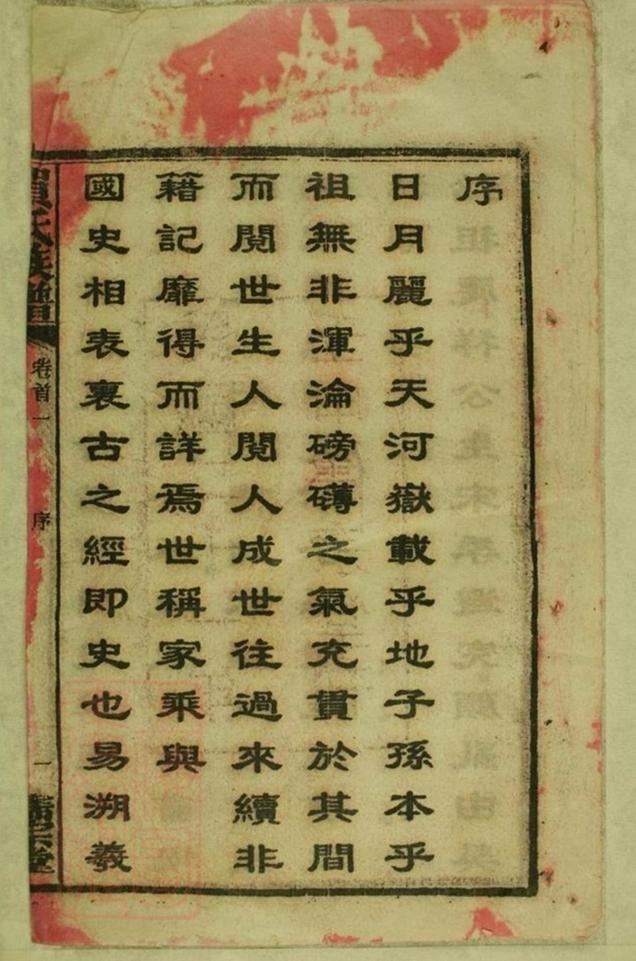 序
日月麗乎天河嶽載乎地子孫本乎
祖無非渾淪磅礴之氣充貫於其間
而閱世生人閱人成世往過來續非
籍記靡得而詳焉世稱家乘與
國史相表裏古之經即史也易溯羲
氏族譜
卷首一
序
一